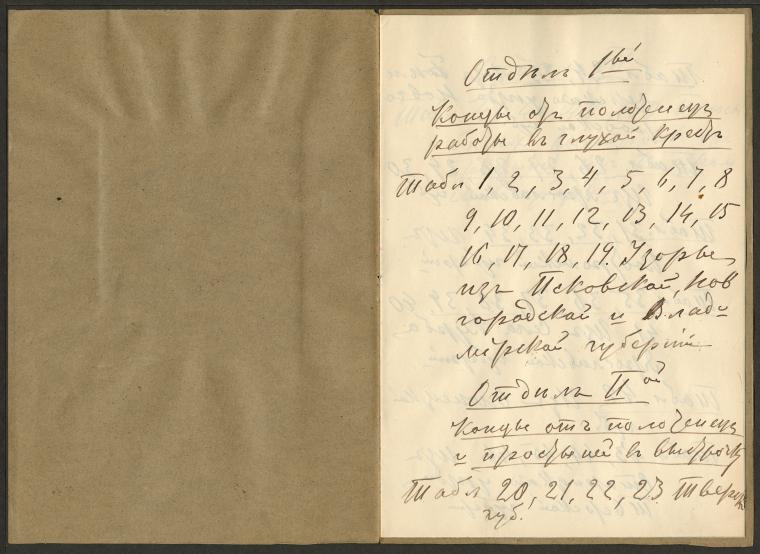 Отдѣлъ 1вый
Концы отъ полотенецъ
работы въ глухой крестъ
Табл 1, 2, 3, 4, 5, 6, 7, 8
9, 10, 11, 12, 13, 14, 15
16, 17, 18, 19. Узоры
изъ Псковской, Нов
городской и Влади
мірской губерній
Отдѣлъ IIой
Концы отъ полотенецъ
и простыней въ
Табл 20, 21, 22, 23 Тверск
губ.